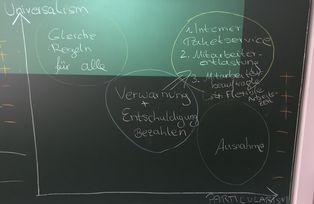 Universalism
Gleiche
Regeln
für alle
1. Interner
Paketservice
2. Mitarbeiter-
entlastung
3. Mitarbeiter
Verwarnung
+
Entschuldigung
Bezahlen
Ausnahme
PARTICULARISM